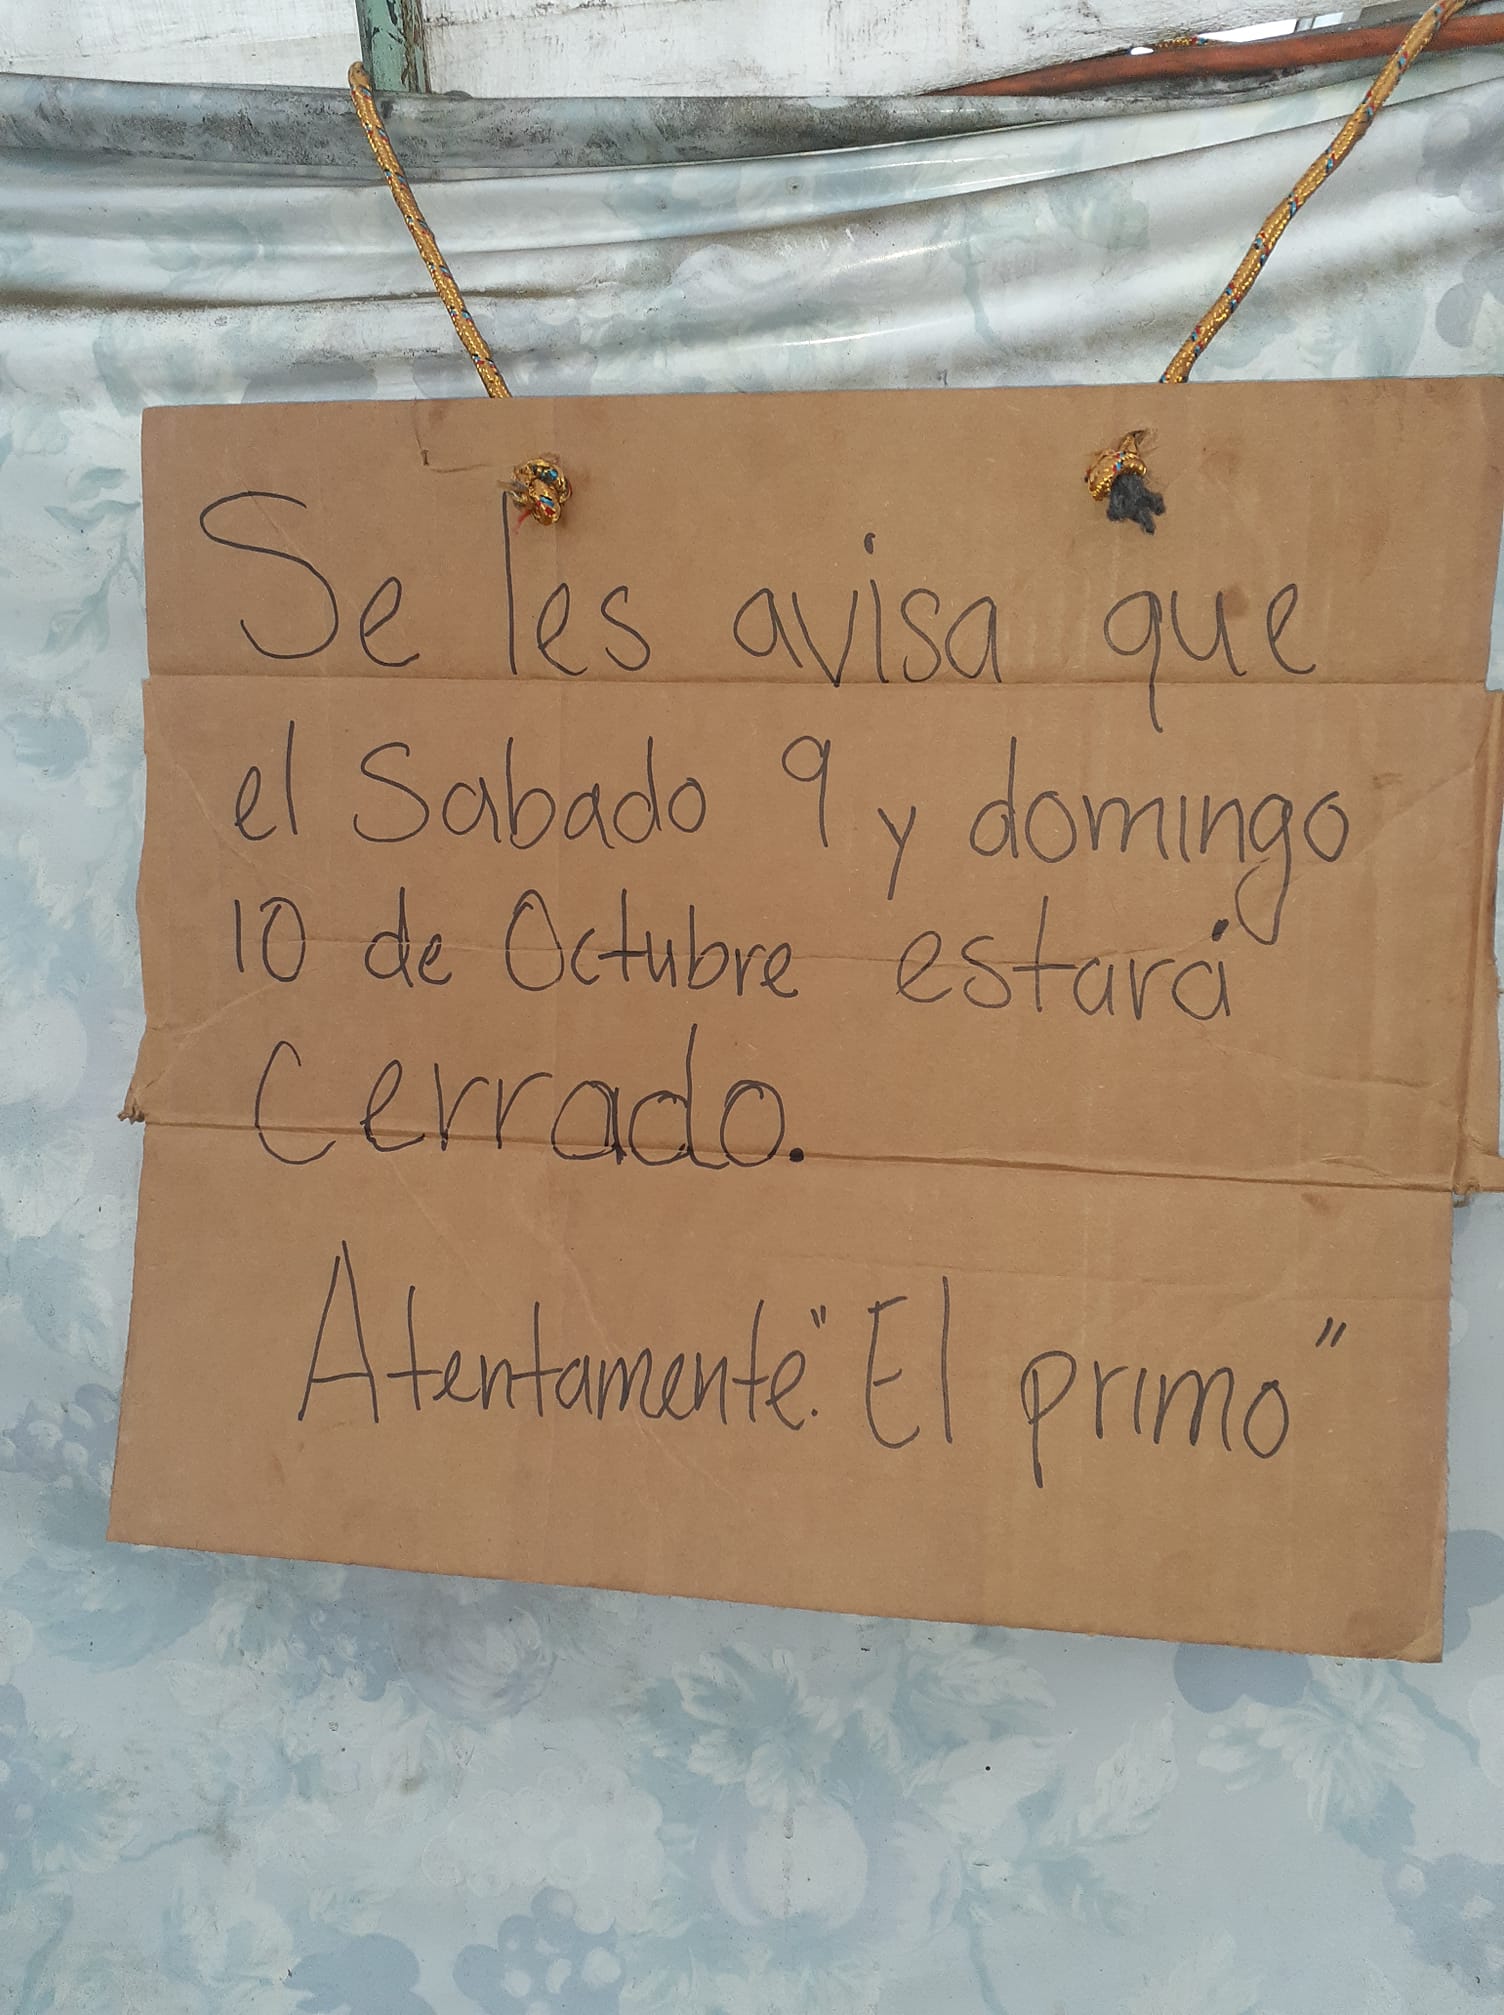 Se les avisa que
el Sabado 9 y domingo
10 de Octubre estará
Cerrado.
Atentamente." El primo"